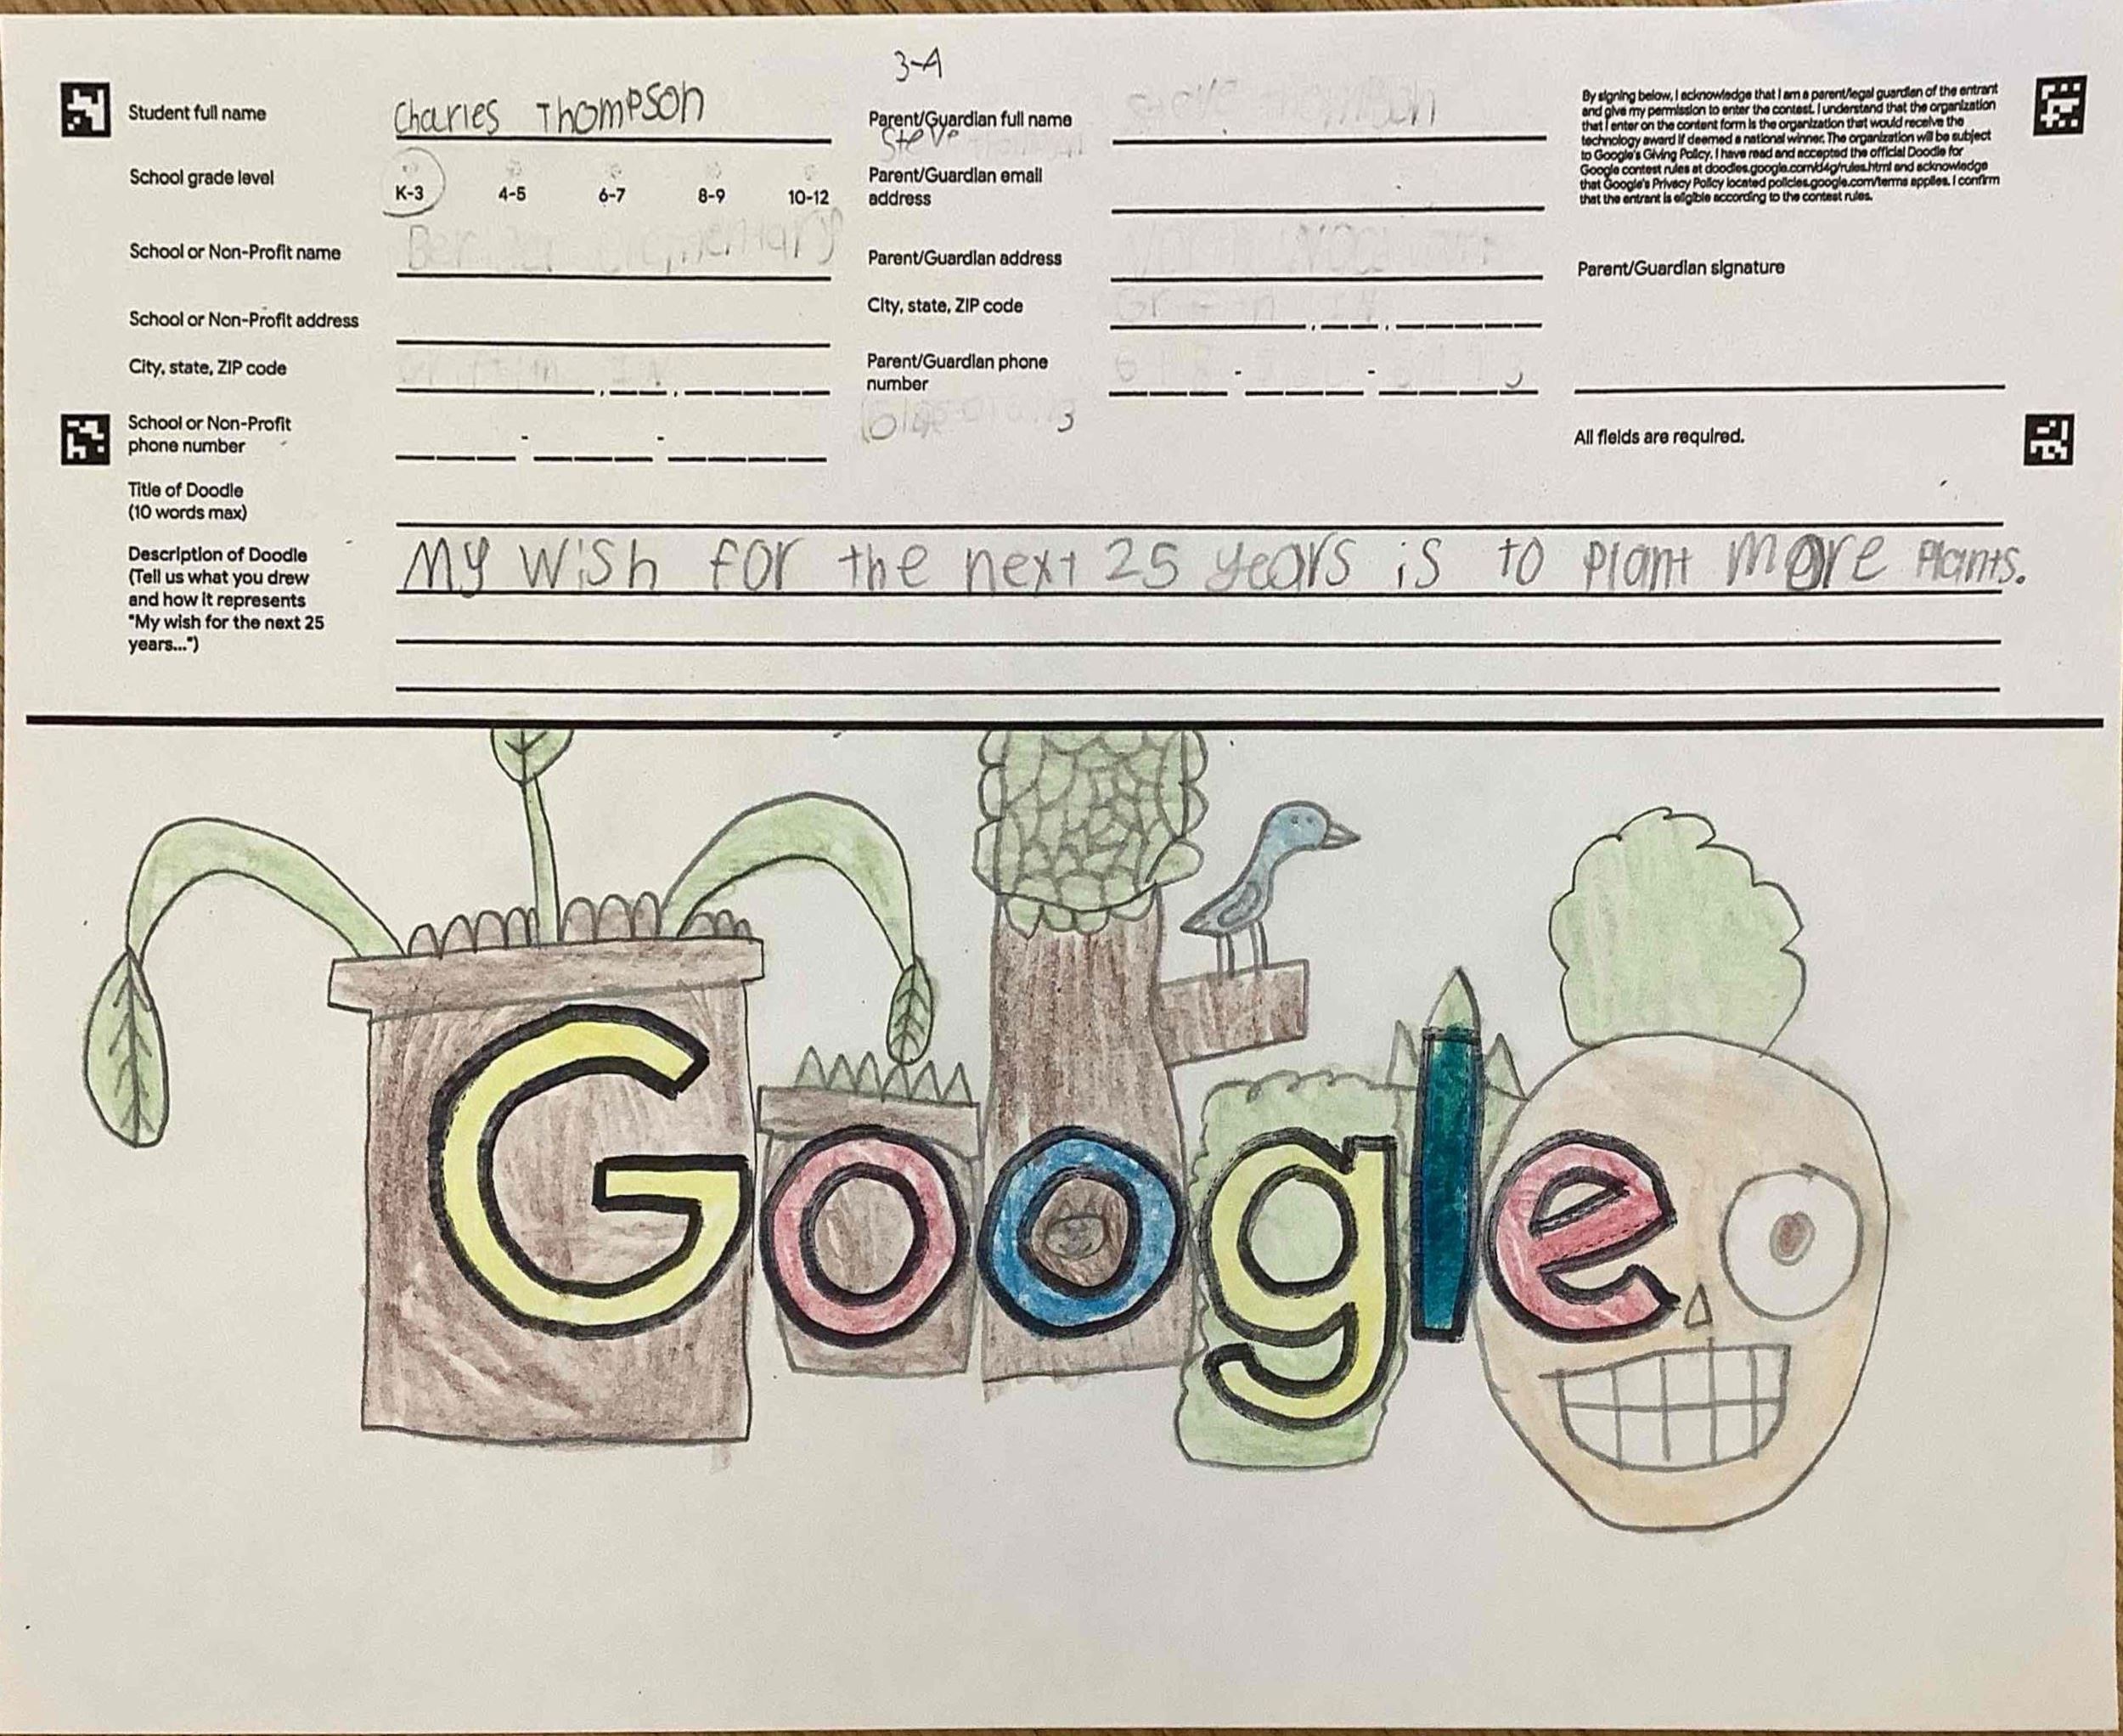 3-A
Student full name
Charles Thompson
School grade level
K-3 4-5 6-7 8-9 10-12
School or Non-Profit name
School or Non-Profit address
City, state, ZIP code
School or Non-Profit
phone number
Parent/Guardian full name
Steve
Parent/Guardian email
address
Parent/Guardian address
City, state, ZIP code
Parent/Guardian phone
number
3
By signing below, I acknowledge that I am a parent/legal guardian of the entrant
and give my permission to enter the contest. I understand that the organization
that I enter on the content form is the organization that would receive the
technology award if deemed a national winner. The organization will be subject
to Google's Giving Policy. I have read and accepted the official Doodle for
Google contest rules at doodles.google.com/d4g/rules.html and acknowledge
that Google's Privacy Policy located policies.google.com/terms applies. I confirm
that the entrant is eligible according to the contest rules.
Parent/Guardian signature
All fields are required.
Title of Doodle
(10 words max)
Description of Doodle
(Tell us what you drew
and how it represents
"My wish for the next 25
years...")
My wish for the next 25 years is to plant more plants.
Google